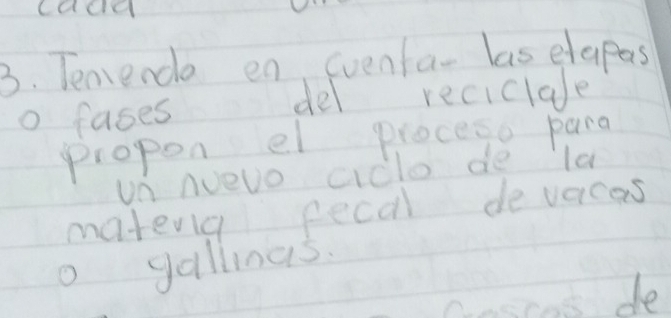 cada
3. Teniendo en cuenta las etapas
o fases del reciclaje
propon el proceso para
un nuevo ciclo de la
materia fecal de vacas
o gallinas.
de